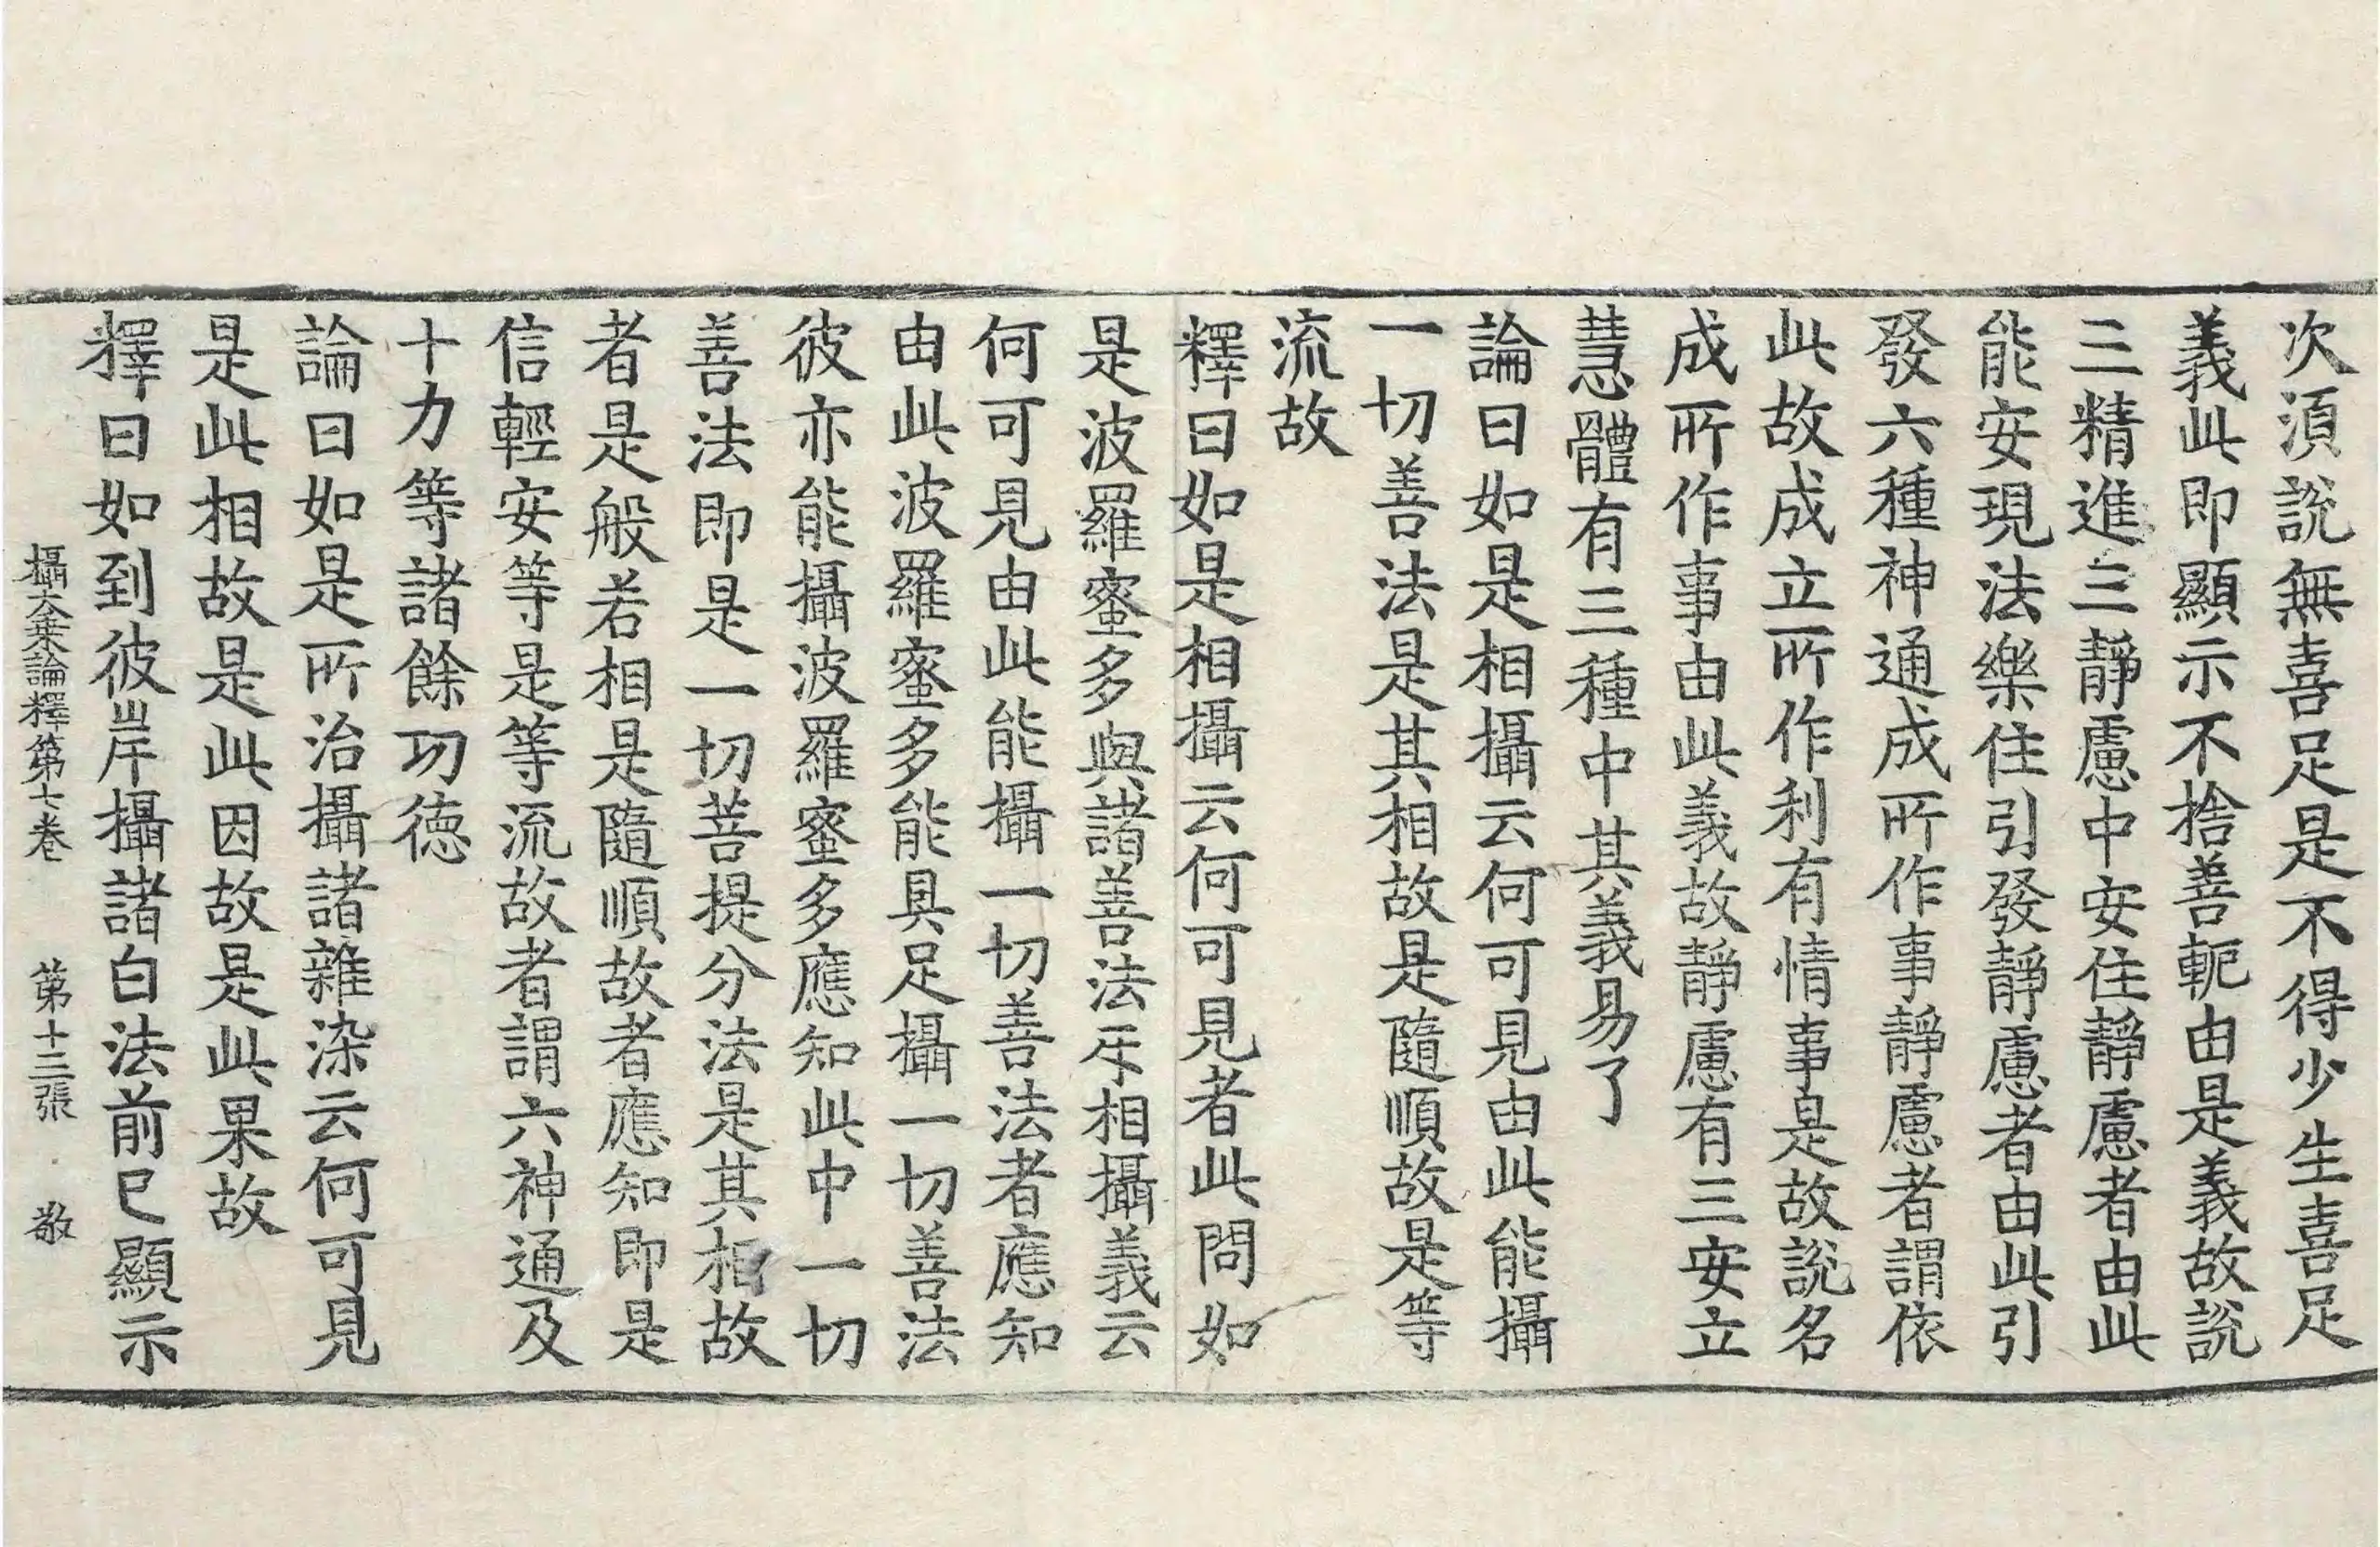 次須說無喜足是不得少生喜足
義此即顯示不捨善軛由是義故說
三精進三靜慮中安住靜慮者由此
能安現法樂住引發靜慮者由此引
發六種神通成所作事靜慮者謂依
此故成立所作利有情事是故說名
成所作事由此義故靜慮有三安立
慧體有三種中其義易了
論曰如是相攝云何可見由此能攝
一切善法是其相故是隨順故是等
流故
釋曰如是相攝云何可見者此問如
是波羅蜜多與諸善法互相攝義云
何可見由此能攝一切善法者應知
由此波羅蜜多能具足攝一切善法
彼亦能攝波羅蜜多應知此中一切
善法即是一切菩提分法是其相故
者是般若相是隨順故者應知即是
信輕安等是等流故者謂六神通及
十力等諸餘功德
論曰如是所治攝諸雜染云何可見
是此相故是此因故是此果故
釋曰如到彼岸攝諸白法前已顯示
攝大乘論釋第七卷 第十三張 敬